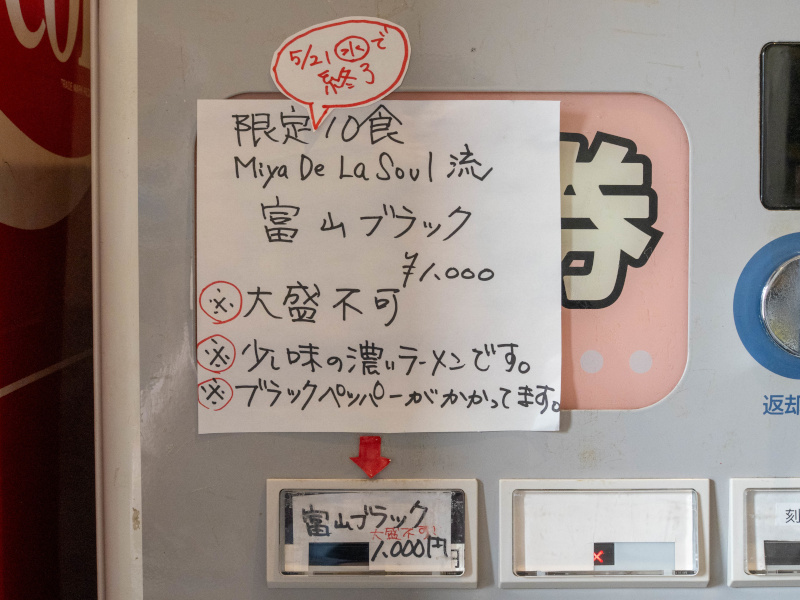 5/21㊌で
終了
限定10食
Miya De La Soul 流
富山ブラック
¥1,000
※大盛不可
※少し味の濃いラーメンです。
※ブラックペッパーがかかってます。
券
返却
富山ブラック
大盛不可!
1,000円
刻